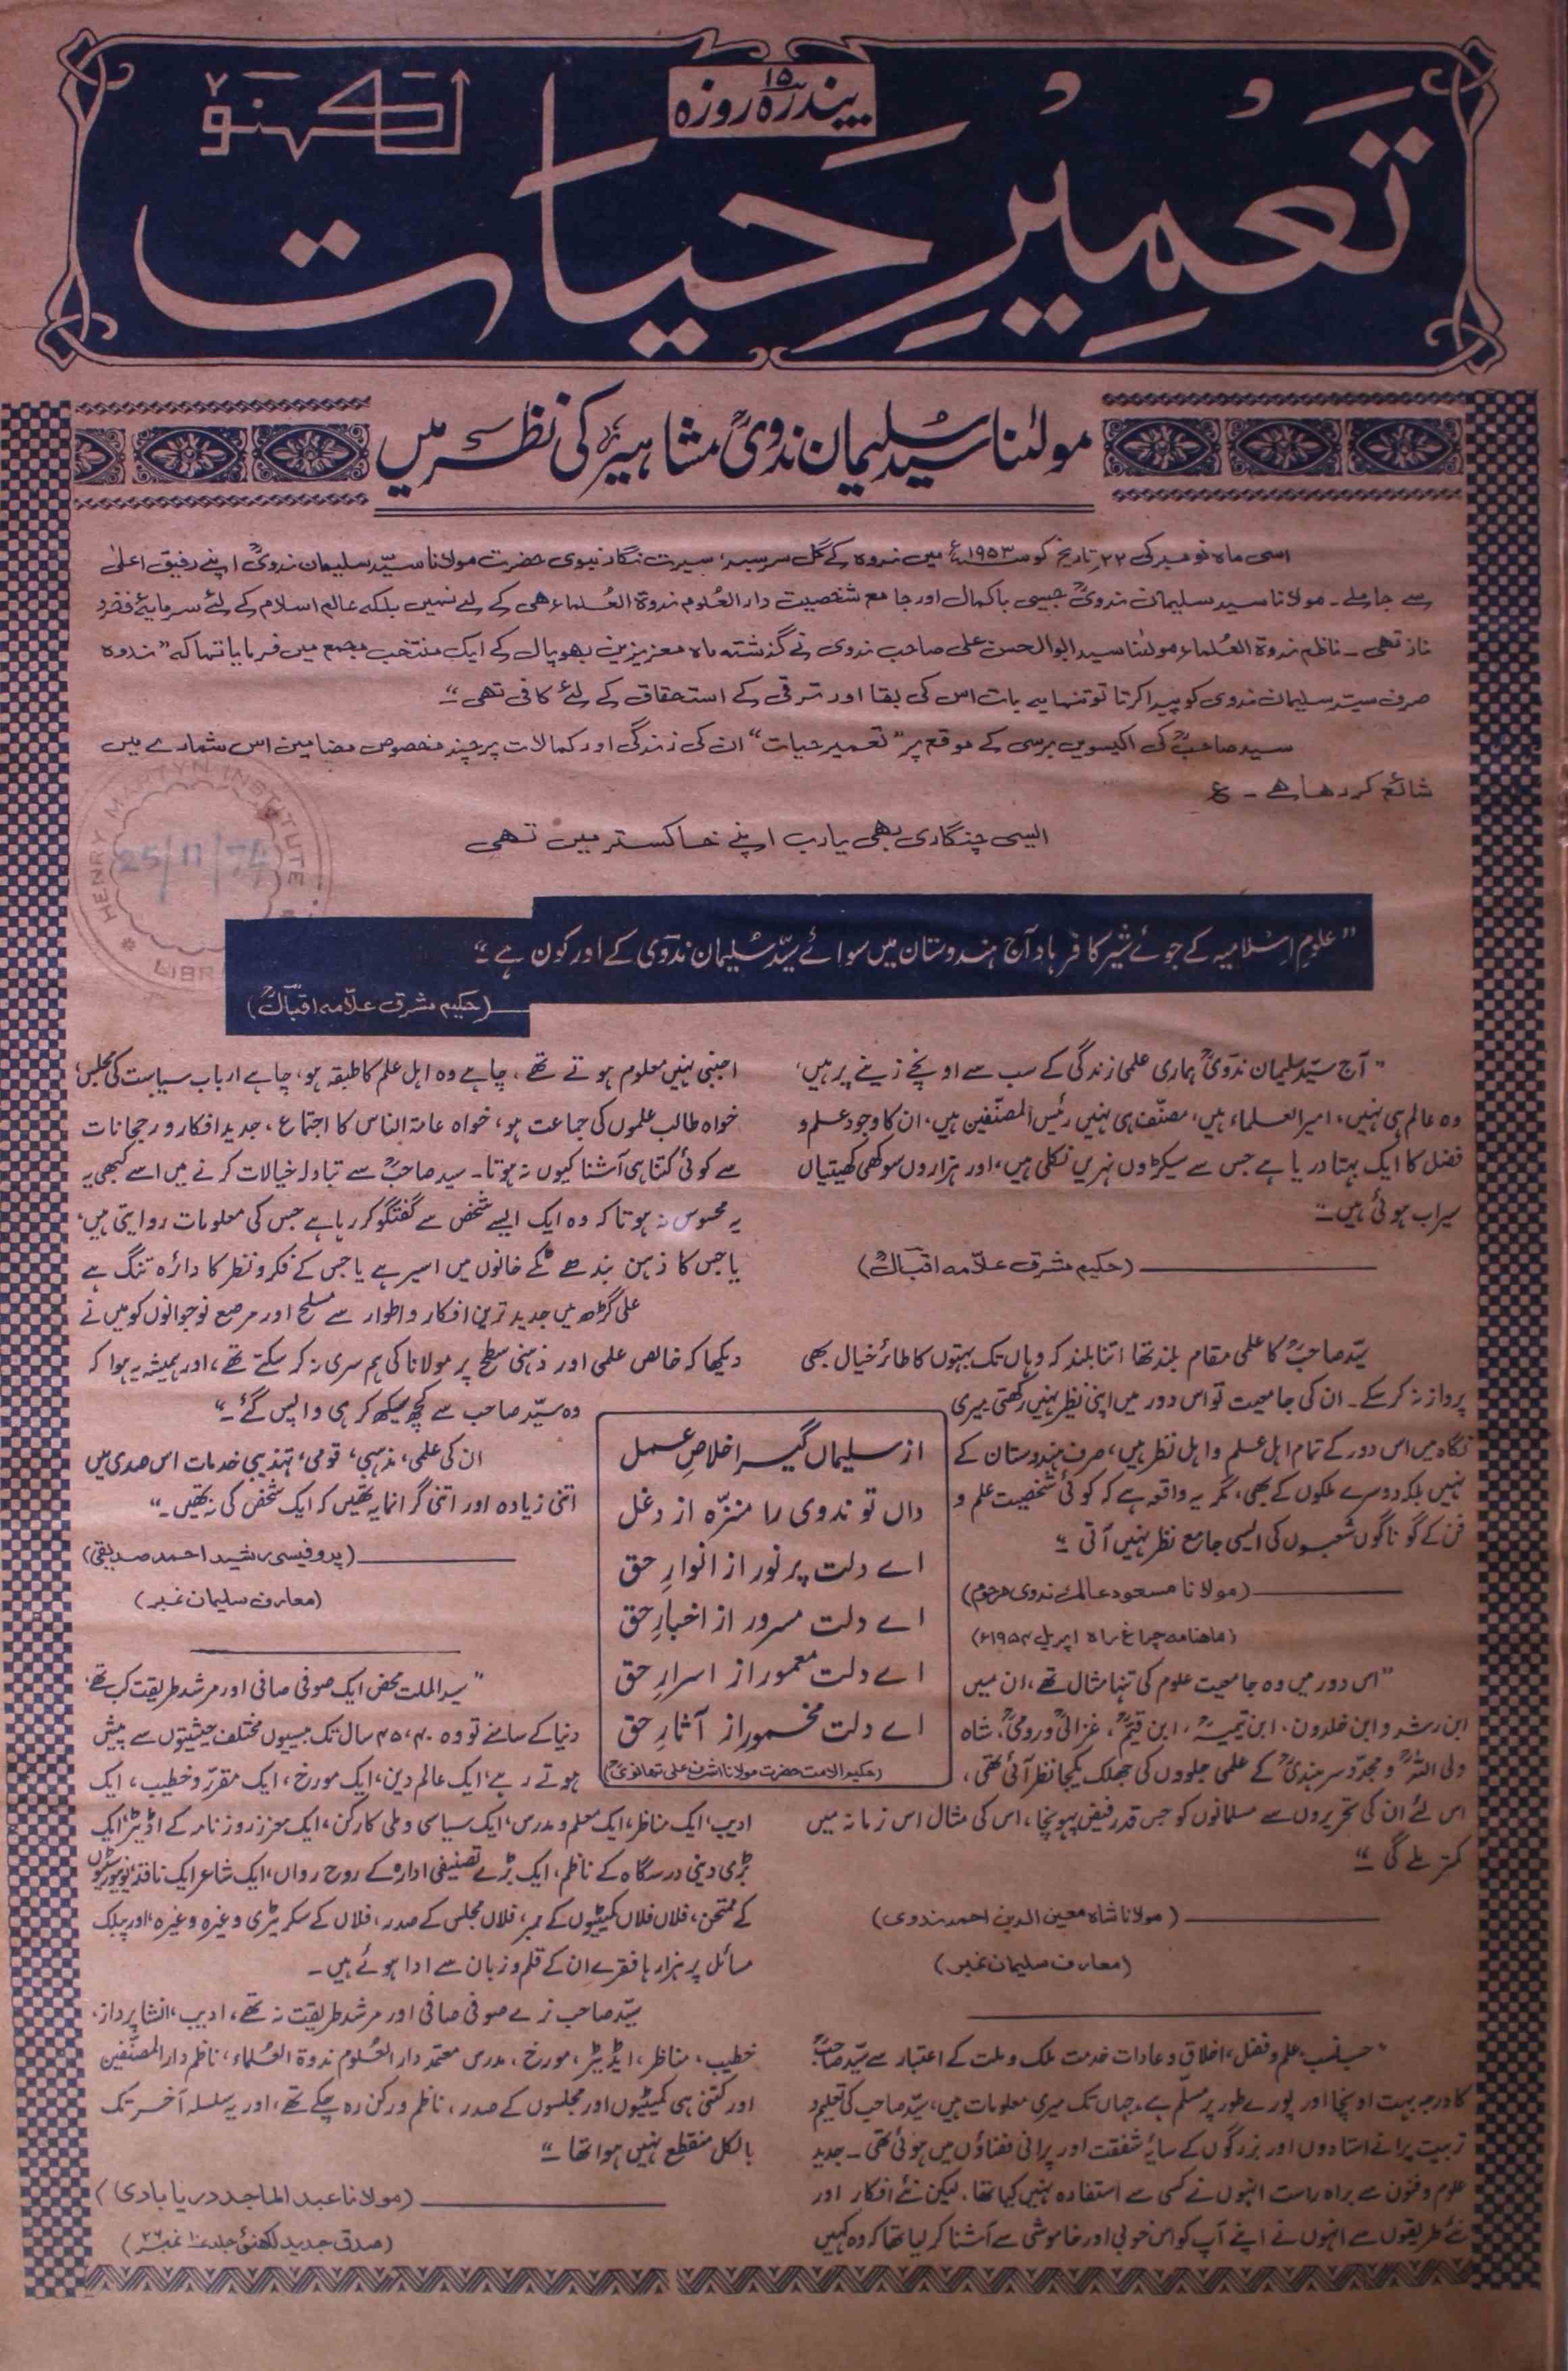 پندرہ ۱۵ روزہ
لکھنؤ
تعمیرِ حیات
مولٰنا سید سلیمان ندویؒ مشاہیر کی نظر میں
اسی ماہ نومبر کی ۲۲ تاریخ کو ۱۹۵۳ء میں ندوہ کے گل سرسبد، سیرت نگار نبوی حضرت مولانا سیّد سلیمان ندویؒ اپنے رفیق اعلیٰ
سے جا ملے ۔ مولانا سید سلیمان ندویؒ جیسی باکمال اور جامع شخصیت دارالعلوم ندوۃ العُلماء ھی کے لئے نہیں بلکہ عالم اسلام کے لئے سرمایۂ فخر و
ناز تھی ۔ ناظم ندوۃ العُلماء مولٰنا سید ابوالحسن علی صاحب ندوی نے گذشتہ ماہ معززین بھوپال کے ایک منتخب مجمع میں فرمایا تھا کہ ”ندوہ
صرف سید سلیمان ندوی کو پیدا کرتا تو تنہا یہ بات اس کی بقا اور ترقی کے استحقاق کے لئے کافی تھی“
سید صاحبؒ کی اکیسویں برسی کے موقع پر ”تعمیر حیات“ ان کی زندگی اور کمالات پر چند مخصوص مضامین اس شمارے میں
شائع کر رھا ھے ۔ ع
ایسی چنگاری بھی یارب اپنے خاکستر میں تھی
HENRY MARTYN INSTITUTE
25/11/74
LIBR
”علومِ اسلامیہ کے جوئے شیر کا فرہاد آج ہندوستان میں سوائے سیّد سلیمان ندوی کے اور کون ہے“
(حکیم مشرق علّامہ اقبالؒ)
”آج سیّد سلیمان ندویؒ ہماری علمی زندگی کے سب سے اونچے زینے پر ہیں،
وہ عالم ہی نہیں، امیر العلماء ہیں، مصنّف ہی نہیں رئیس المصنّفین ہیں، ان کا وجود علم و
فضل کا ایک بہتا دریا ہے جس سے سیکڑوں نہریں نکلی ہیں، اور ہزاروں سوکھی کھیتیاں
سیراب ہوئی ہیں“
(حکیم مشرق علّامہ اقبالؒ)
سیّد صاحبؒ کا علمی مقام بلند تھا اتنا بلند کہ وہاں تک بہتوں کا طائرِ خیال بھی
پرواز نہ کر سکے ۔ ان کی جامعیت تو اس دور میں اپنی نظیر نہیں رکھتی میری
نگاہ میں اس دور کے تمام اہل علم و اہل نظر ہیں، صرف ہندوستان کے
نہیں بلکہ دوسرے ملکوں کے بھی، مگر یہ واقعہ ہے کہ کوئی شخصیت علم و
فن کے گوناگوں شعبوں کی ایسی جامع نظر نہیں آتی“
(مولانا مسعود عالم ندوی مرحوم)
(ماھنامہ چراغ راہ اپریل ۱۹۵۴ء)
”اس دور میں وہ جامعیت علوم کی تنہا مثال تھے، ان میں
ابن رشد و ابن خلدون، ابن تیمیہؒ، ابن قیمؒ، غزالیؒ و رومیؒ، شاہ
ولی اللہؒ و مجدّد سرہندیؒ کے علمی جلووں کی جھلک یکجا نظر آتی تھی،
اس لئے ان کی تحریروں سے مسلمانوں کو جس قدر فیض پہونچا، اس کی مثال اس زمانہ میں
کمتر ملے گی“
(مولانا شاہ معین الدین احمد ندوی)
(معارف سلیمان نمبر)
”حسب نسب، علم و فضل، اخلاق و عادات خدمت ملک و ملت کے اعتبار سے سیّد صاحبؒ
کا درجہ بہت اونچا اور پورے طور پر مسلّم ہے، جہاں تک میری معلومات ہیں، سیّد صاحب کی تعلیم و
تربیت پرانے استادوں اور بزرگوں کے سایۂ شفقت اور پرانی فضاؤں میں ہوئی تھی ۔ جدید
علوم و فنون سے براہ راست انہوں نے کسی سے استفادہ نہیں کیا تھا، لیکن نئے افکار اور
نئے طریقوں سے انہوں نے اپنے آپ کو اس خوبی اور خاموشی سے آشنا کر لیا تھا کہ وہ کہیں
اجنبی نہیں معلوم ہوتے تھے، چاہے وہ اہل علم کا طبقہ ہو، چاہے ارباب سیاست کی مجلس،
خواہ طالب علموں کی جماعت ہو، خواہ عامۃ الناس کا اجتماع، جدید افکار و رجحانات
سے کوئی کتنا ہی آشنا کیوں نہ ہوتا ۔ سید صاحبؒ سے تبادلہ خیالات کرنے میں اسے کبھی یہ
یہ محسوس نہ ہوتا کہ وہ ایک ایسے شخص سے گفتگو کر رہا ہے جس کی معلومات روایتی ہیں،
یا جس کا ذہن بندھے ٹکے خانوں میں اسیر ہے یا جس کے فکر و نظر کا دائرہ تنگ ہے
علی گڑھ میں جدید ترین افکار و اطوار سے مسلح اور مرصع نوجوانوں کو میں نے
دیکھا کہ خالص علمی اور ذہنی سطح پر مولانا کی ہم سری نہ کر سکتے تھے، اور ہمیشہ یہ ہوا کہ
وہ سیّد صاحب سے کچھ سیکھ کر ہی واپس گئے“
ان کی علمی، مذہبی، قومی، تہذیبی خدمات اس صدی میں
اتنی زیادہ اور اتنی گرانمایہ تھیں کہ ایک شخص کی نہ تھیں۔“
(پروفیسر رشید احمد صدیقی)
(معارف سلیمان نمبر)
از سلیماں گیر اخلاصِ عمل
داں تو ندوی را منزّہ از دغل
اے دلت پرنور از انوارِ حق
اے دلت مسرور از اخبارِ حق
اے دلت معمور از اسرارِ حق
اے دلت مخمور از آثارِ حق
(حکیم الامت حضرت مولانا اشرف علی تھانویؒ)
”سید الملت محض ایک صوفی صافی اور مرشد طریقت کب تھے،
دنیا کے سامنے تو وہ ۴۰، ۴۵ سال تک بیسیوں مختلف حیثیتوں سے پیش
ہوتے رہے، ایک عالم دین، ایک مورخ، ایک مقرّر و خطیب، ایک
ادیب، ایک مناظر، ایک معلم و مدرس، ایک سیاسی و ملی کارکن، ایک معزز روزنامہ کے اڈیٹر، ایک
بڑی دینی درسگاہ کے ناظم، ایک بڑے تصنیفی ادارہ کے روح رواں، ایک شاعر ایک ناقد، یونیورسٹیوں
کے ممتحن، فلاں فلاں کمیٹیوں کے ممبر، فلاں مجلس کے صدر، فلاں کے سکریٹری وغیرہ وغیرہ، اور پبلک
مسائل پر ہزارہا فقرے ان کے قلم و زبان سے ادا ہوئے ہیں ۔
سیّد صاحب نرے صوفی صافی اور مرشد طریقت نہ تھے، ادیب، انشا پرداز،
خطیب، مناظر، ایڈیٹر، مورخ، مدرس معتمد دارالعلوم ندوۃ العُلماء، ناظم دارالمصنّفین
اور کتنی ہی کمیٹیوں اور مجلسوں کے صدر، ناظم و رکن رہ چکے تھے، اور یہ سلسلہ آخر تک
بالکل منقطع نہیں ہوا تھا“
(مولانا عبد الماجد دریابادی)
(صدق جدید لکھنؤ جلد ۱۰ نمبر ۲۶)